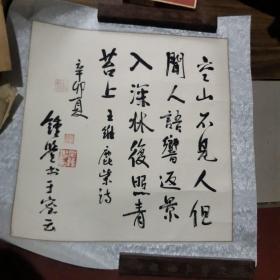 空山不見人但
聞人語響返景
入深林復照青
苔上 王維鹿柴詩
辛卯夏
鍾
书于